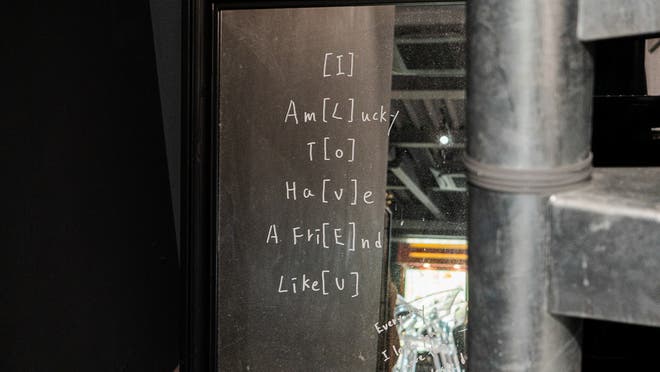 [I]
Am[L]ucky
T[o]
Ha[v]e
A Fri[E]nd
Like[U]
I